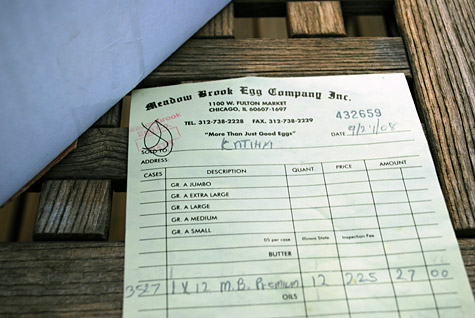 Meadow Brook Egg Company Inc.
1100 W. FULTON MARKET
CHICAGO, IL 60607-1697
TEL. 312-738-2228 FAX. 312-738-2229
432659
"More Than Just Good Eggs"
DATE 9/27/08
SOLD TO
ADDRESS
CASES DESCRIPTION QUANT PRICE AMOUNT
GR. A JUMBO
GR. A EXTRA LARGE
GR. A LARGE
GR. A MEDIUM
GR. A SMALL
per case Illinois State Inspection Fee
BUTTER
3527 1 X 12 M.B. Premium 12 2.25 27 00
OILS